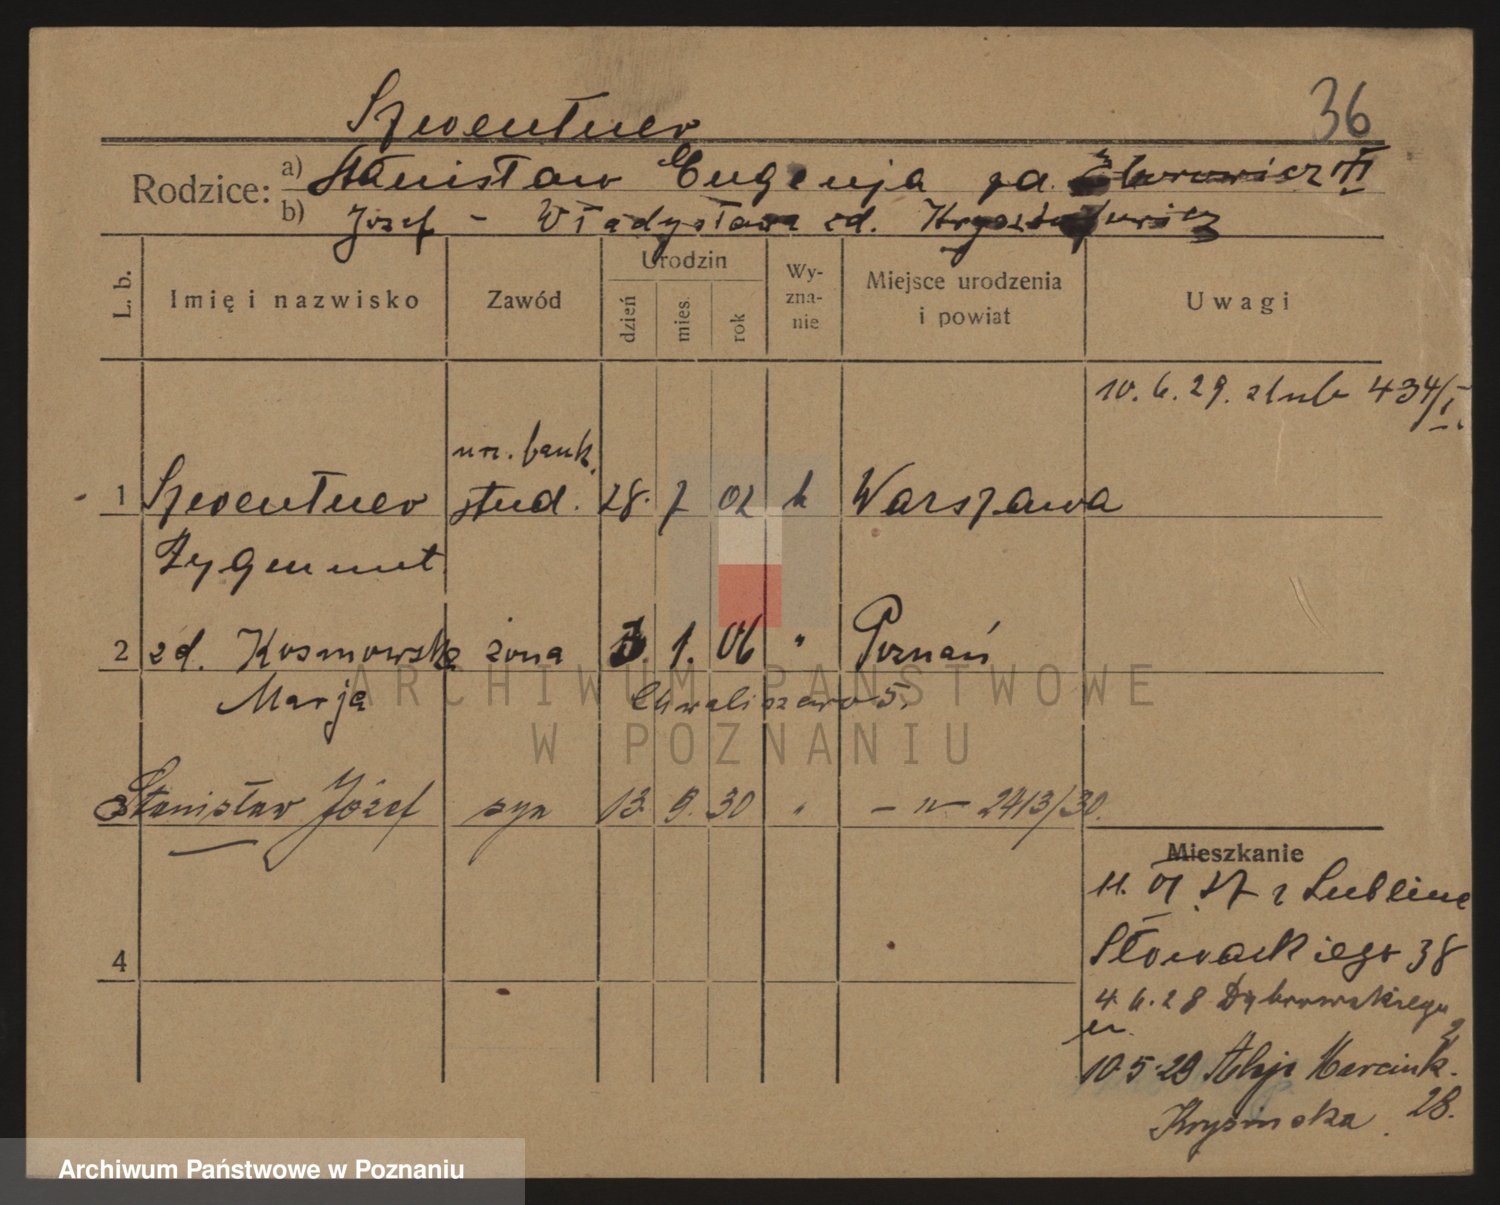 36
Szwentner
Rodzice:
a) Stanisław Eugenja zd.
b) Józef - Władysława zd.
L. b.
Imię i nazwisko
Zawód
Urodzin
dzień
mies.
rok
Wy-
zna-
nie
Miejsce urodzenia
i powiat
Uwagi
10. 6. 29. ślub 434/I.
urz. bank.
1 Szwentner stud. 28. 7 02 k Warszawa
Zygmunt
2 zd. Kosmowska żona 3. 1. 06 " Poznań
Marja Chwaliszewo 5.
3 Stanisław Józef syn 13. 9. 30 " - " - 2413/30.
Mieszkanie
11. VI 27 z Lublina
Słowackiego 38
4
4. 6. 28 Dąbrowskiego
2
10.5.29 Aleje Marcink.
28.
ARCHIWUM PAŃSTWOWE
W POZNANIU
Archiwum Państwowe w Poznaniu